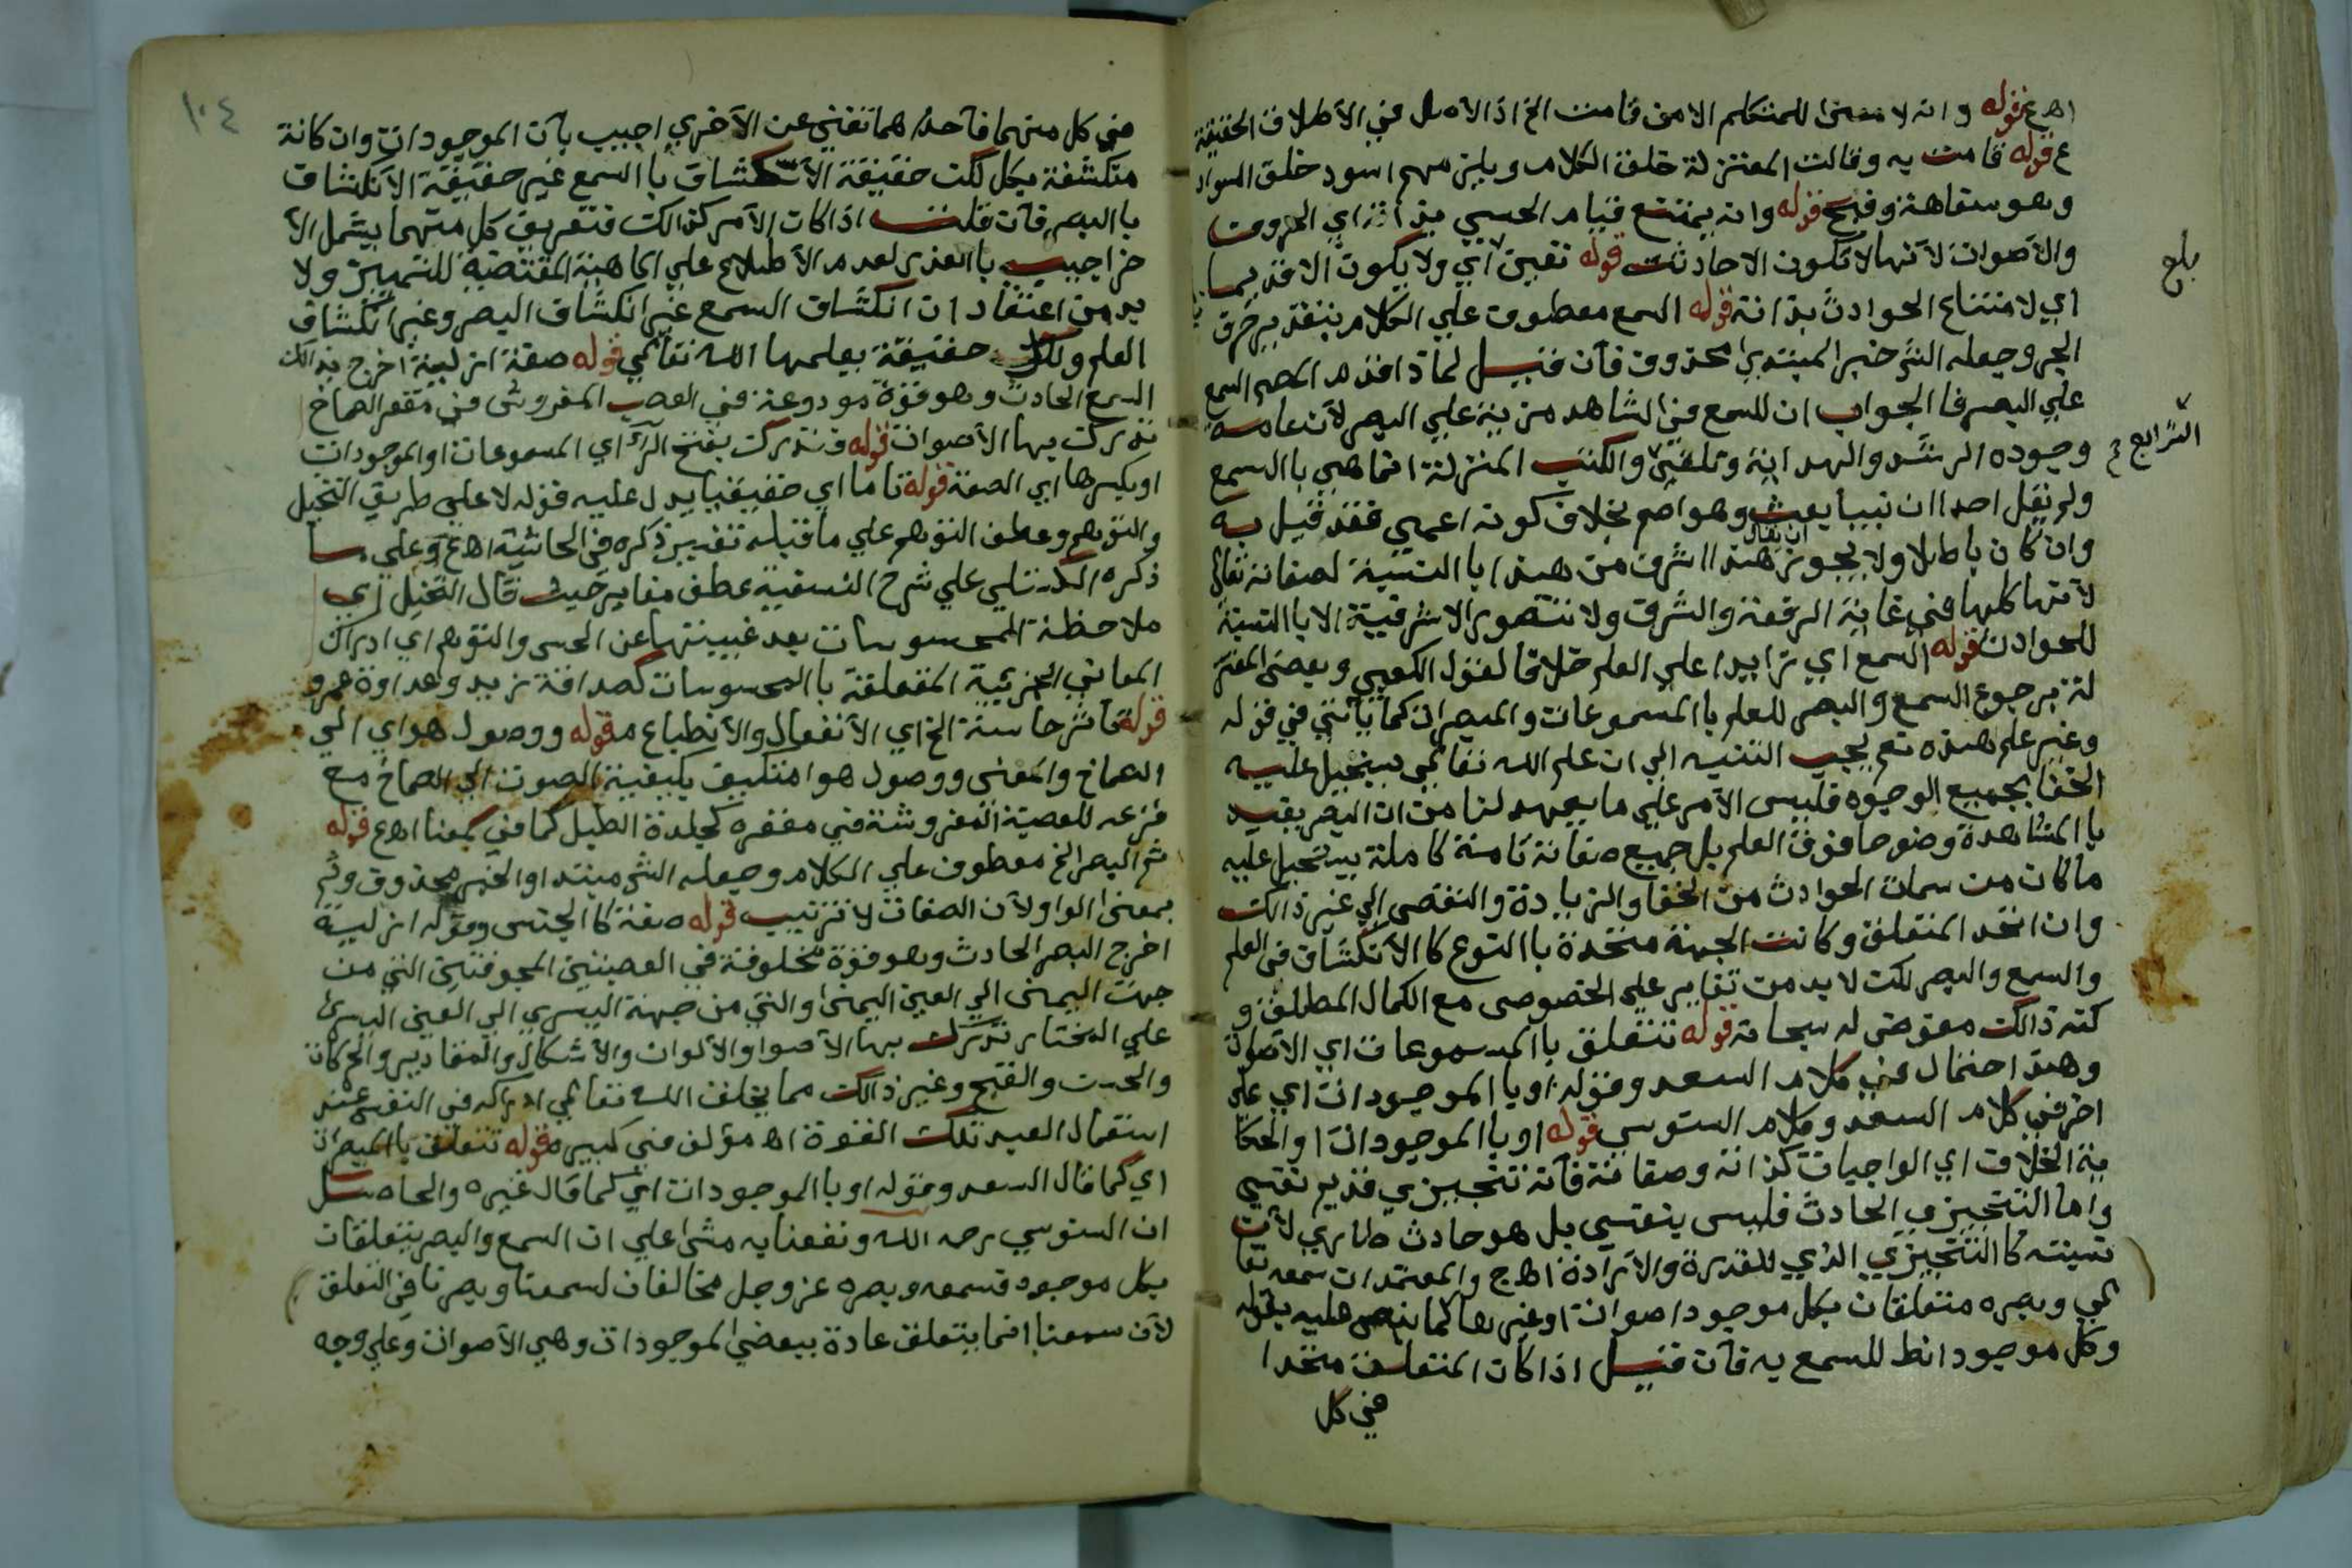 اهع قوله وانه لا معنى للمتكلم الا من قامت الخ اذ الاصل في الاطلاق الحقيقة
ع قوله قامت به وقالت المعتزلة خلق الكلام ويلزمهم اسود خلق السواد
وهو سفاهة وقبح قوله وانه يمتنع قيام الحسي بذاته اي الحروف
والاصوات لانها لا تكون الا حادثة قوله تعين اي ولا يكون الا قديما
اي لامتناع الحوادث بذاته قوله السمع معطوف على الكلام بتقدير حرف
الجر وجعله الش خبر المبتدا محذوف فان قيل لماذا قدم المص السمع
على البصر فالجواب ان للسمع في الشاهد مزية على البصر لان عامة
وجوده الرشد والهداية وتلقي والكتب المنزلة انما هي با السمع
ولم يقل احد ان نبيا بعث وهو اصم بخلاف كونه اعمى فقد قيل به
وان كان باطلا ولا يجوز ان يقال هذا اشرف من هذا با النسبة لصفاته تعالى
لانها كلها في غاية الرفعة والشرف ولا تتصور الاشرفية الا با النسبة
للحوادث قوله السمع اي زايدا على العلم خلافا لقول الكعبي وبعض المعتز
لة برجوع السمع والبصر للعلم با المسموعات والمبصرات كما ياتي في قوله
وغير علم هذه نعم يجب التنبيه الى ان علم الله تعالى يستحيل عليه
الخفا بجميع الوجوه فليس الامر على ما يعهد لنا من ان البصر يفيد
با المشاهدة وضوحا فوق العلم بل جميع صفاته تامة كاملة يستحيل عليه
ما كان من سمات الحوادث من الخفا والزيادة والنقص الى غير ذالك
وان اتحد المتعلق وكانت الجهة متحدة با النوع كا الانكشاف في العلم
والسمع والبصر لكن لا بد من تغاير على الخصوص مع الكمال المطلق و
كنه ذالك مفوض له سبحانه قوله تتعلق با المسموعات اي الاصوات
وهذ احتمال في كلام السعد وقوله او با الموجودات اي على
اخر في كلام السعد وكلام السنوسي قوله او با الموجودات او لحكا
ية الخلاف اي الواجبات كذاته وصفاته فانه تنجيزي قديم نفسي
واما التنجيزي الحادث فليس بنفسي بل هو حادث طاري لان
نسبته كا التنجيزي الذي للقدرة والارادة اهج والمعتمد ان سمعه تعا
لى وبصره متعلقان بكل موجود اصوات او غيرها كما نص عليه بقوله
وكل موجود انط للسمع به فان قيل اذا كان المتعلق متحدا
في كل
بلع
الش رابع ع
١٠٤
في كل منهما فاحداهما تغني عن الاخرى اجيب بان الموجودات وان كانة
متكشفة بكل لكن حقيقة الانكشاف با السمع غير حقيقة الانكشاف
با البصر فان قلت اذا كان الامر كذالك فتعريف كل منهما يشمل الا
خر اجيب با العذر لعدم الاطلاع على الماهية المقتضية للتمييز ولا
بد من اعتقاد ان انكشاف السمع غير انكشاف البصر وغير انكشاف
العلم ولكل حقيقة يعلمها الله تعالى قوله صفة ازلية اخرج بذالك
السمع الحادث وهو قوة مودوعة في العصب المفروش في مقعر الصماخ
تدركت بها الاصوات قوله فتدرك بفتح الرا اي المسموعات او الموجودات
او بكسرها اي الصفة قوله تاما اي حقيقيا يدل عليه قوله لا على طريق التخيل
والتوهم وعطف التوهم على ما قبله تفسير ذكره في الحاشية اهع وعلى ما
ذكره الكستلي على شرح النسفية عطف مغاير حيث قال التخيل اي
ملاحظة المحسوسات بعد غيبتها عن الحس والتوهم اي ادراك
المعاني الجزئية المتعلقة با المحسوسات كصداقة زيد وعداوة عمرو
قوله تاثر حاسة الخ اي الانفعال والانطباع م قوله ووصول هواي الى
الصماخ والمعنى ووصول هوا متكيف بكيفية الصوت الى الصماخ مع
قرعه للعصبة المفروشة في مقعره كجلدة الطبل كما في معنا اهع قوله
ثم البصر الخ معطوف على الكلام وجعله الش مبتدا والخبر محذوف وثم
بمعنى الواو لان الصفات لا ترتيب قوله صفة كا الجنس وقوله ازلية
اخرج البصر الحادث وهو قوة مخلوقة في العصبتين المجوفتين التي من
جهة اليمنى الى العين اليمنى والتي من جهة اليسرى الى العين اليسرى
على المختار تدرك بها الاضوا والالوان والاشكال والمقادير والحركات
والحسن والقبح وغير ذالك مما يخلق الله تعالى ادراكه في النفس عند
استعمال العبد تلك القوة اه مؤلف في كبيره قوله تتعلق با المبصرات
اي كما قال السعد وقوله او با الموجودات اي كما قال غيره والحاصل
ان السنوسي رحمه الله ونفعنا به مشى على ان السمع والبصر يتعلقات
بكل موجود فسمعه وبصره عز وجل مخالفان لسمعنا وبصرنا في التعلق
لان سمعنا انما يتعلق عادة ببعض الموجودات وهي الاصوات وعلى وجه